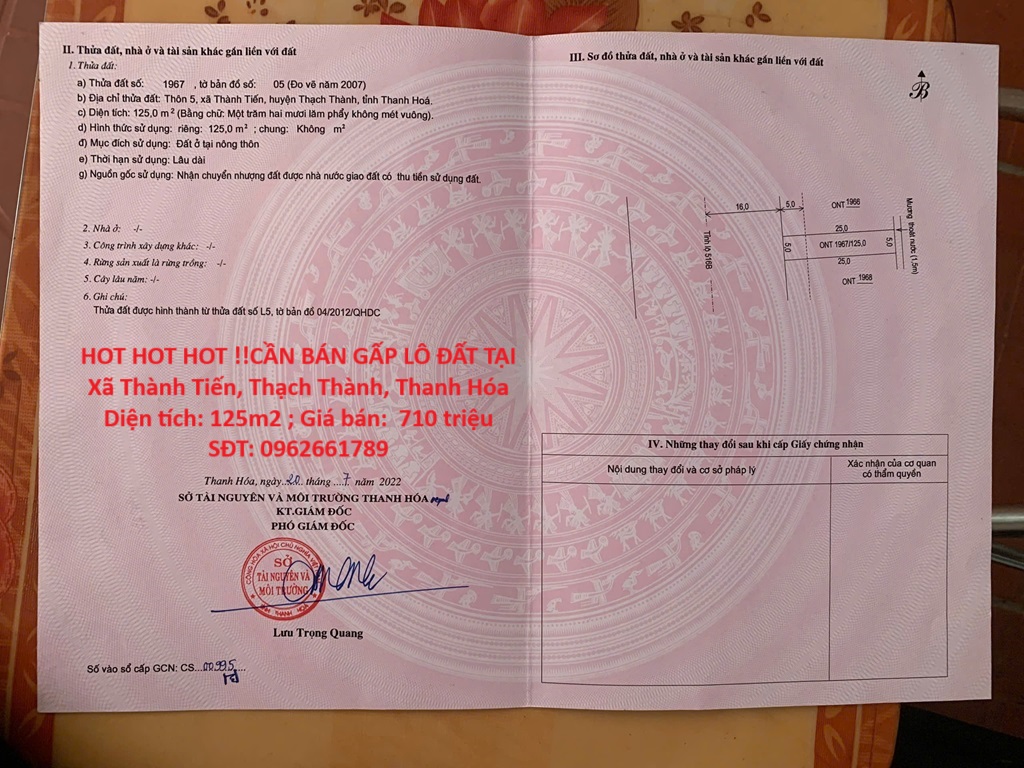 II. Thửa đất, nhà ở và tài sản khác gắn liền với đất
1. Thửa đất:
a) Thửa đất số: 1967 , tờ bản đồ số: 05 (Đo vẽ năm 2007)
b) Địa chỉ thửa đất: Thôn 5, xã Thành Tiến, huyện Thạch Thành, tỉnh Thanh Hoá.
c) Diện tích: 125,0 m² (Bằng chữ: Một trăm hai mươi lăm phẩy không mét vuông).
d) Hình thức sử dụng: riêng: 125,0 m² ; chung: Không m²
đ) Mục đích sử dụng: Đất ở tại nông thôn
e) Thời hạn sử dụng: Lâu dài
g) Nguồn gốc sử dụng: Nhận chuyển nhượng đất được nhà nước giao đất có thu tiền sử dụng đất.
2. Nhà ở: -/-
3. Công trình xây dựng khác: -/-
4. Rừng sản xuất là rừng trồng: -/-
5. Cây lâu năm: -/-
6. Ghi chú:
Thửa đất được hình thành từ thửa đất số L5, tờ bản đồ 04/2012/QHDC
HOT HOT HOT !!CẦN BÁN GẤP LÔ ĐẤT TẠI
Xã Thành Tiến, Thạch Thành, Thanh Hóa
Diện tích: 125m2 ; Giá bán: 710 triệu
SĐT: 0962661789
Thanh Hóa, ngày..20. tháng ...7 năm 2022
SỞ TÀI NGUYÊN VÀ MÔI TRƯỜNG THANH HÓA
KT.GIÁM ĐỐC
PHÓ GIÁM ĐỐC
CỘNG HÒA XÃ HỘI CHỦ NGHĨA VIỆT
SỞ
TÀI NGUYÊN VÀ
MÔI TRƯỜNG
THANH HÓA
Lưu Trọng Quang
Số vào sổ cấp GCN: CS...00995...
III. Sơ đồ thửa đất, nhà ở và tài sản khác gắn liền với đất
B
16,0
5,0
ONT 1966
Tỉnh lộ 516B
25,0
5,0
ONT 1967/125,0
5,0
25,0
ONT 1968
Mương thoát nước (1,5m)
IV. Những thay đổi sau khi cấp Giấy chứng nhận
Nội dung thay đổi và cơ sở pháp lý
Xác nhận của cơ quan
có thẩm quyền